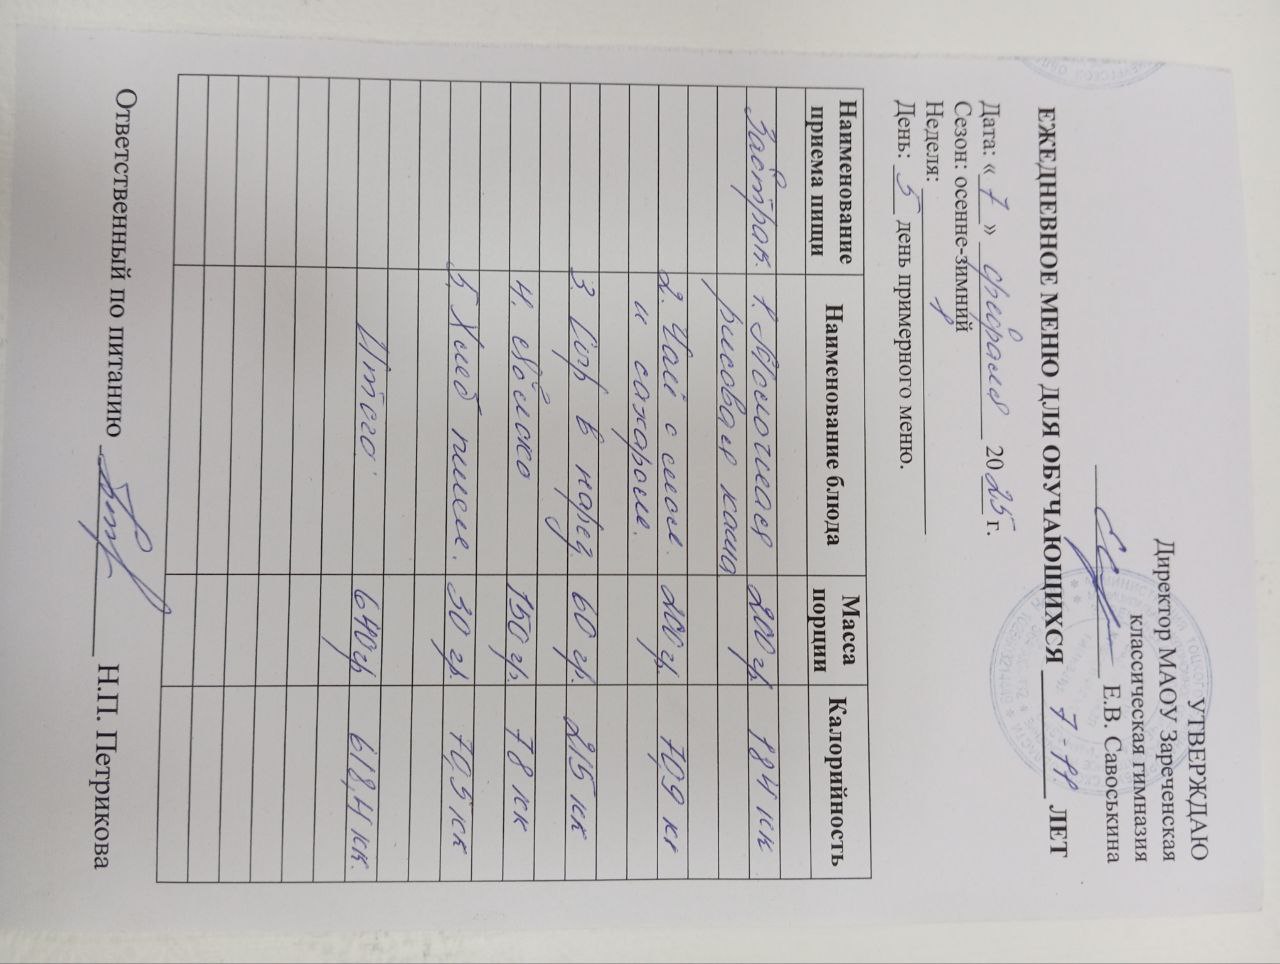 УТВЕРЖДАЮ
Директор МАОУ Зареченская
классическая гимназия
Е.В. Савоськина
ЕЖЕДНЕВНОЕ МЕНЮ ДЛЯ ОБУЧАЮЩИХСЯ 7-11 ЛЕТ
Дата: « 7 » февраля 2025 г.
Сезон: осенне-зимний
Неделя: 1
День: 5 день примерного меню.
Наименование приема пищи Наименование блюда Масса порции Калорийность
Завтрак. 1. Молочная 200 гр. 184 кк
рисовая каша
2. Чай с 200 гр. 70,9 кк
и сахаром.
3. Сыр в нарез. 60 гр. 215 кк
4. Яблоко 150 гр. 78 кк
5. Хлеб пшен. 30 гр. 70,5 кк
Итого: 640 гр. 618,4 кк.
Ответственный по питанию Н.П. Петрикова